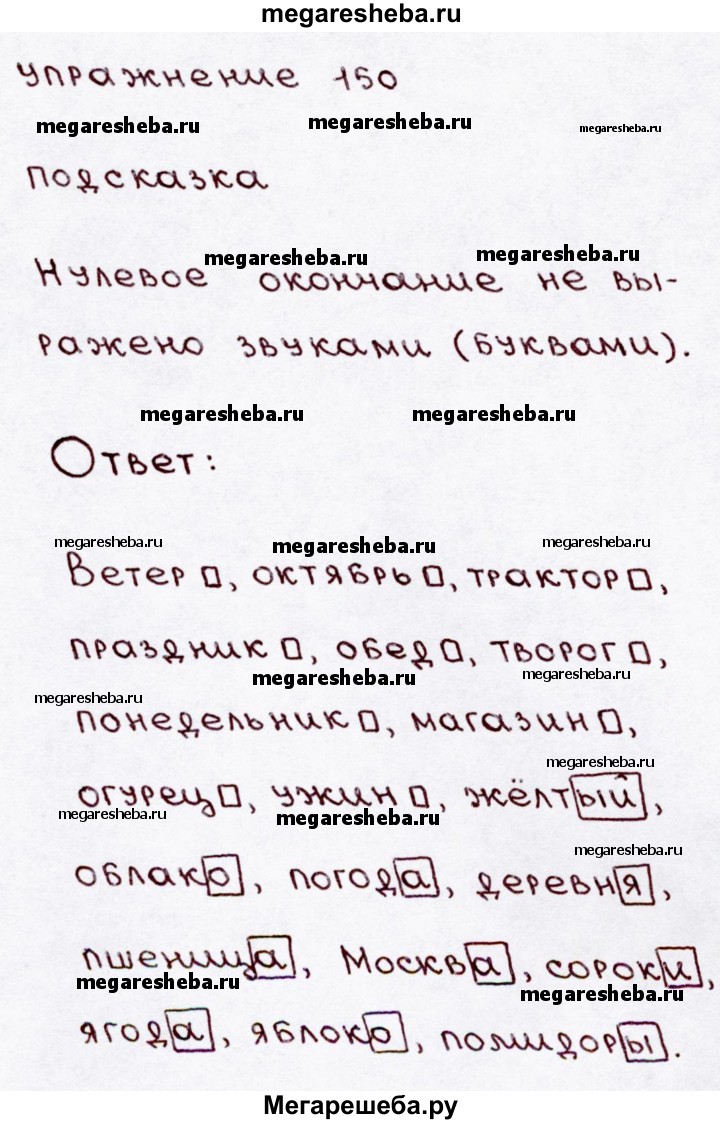 megaresheba.ru
упражнение 150
megaresheba.ru megaresheba.ru megaresheba.ru
подсказка
megaresheba.ru megaresheba.ru
Нулевое окончание не вы-
ражено звуками (буквами).
megaresheba.ru megaresheba.ru
Ответ:
megaresheba.ru megaresheba.ru megaresheba.ru
Ветер□, октябрь□, трактор□,
праздник□, обед□, творог□,
megaresheba.ru megaresheba.ru megaresheba.ru
понедельник□, магазин□,
megaresheba.ru
огурец□, ужин□, жёлтый,
megaresheba.ru megaresheba.ru
megaresheba.ru
облако, погода, деревня,
пшеница, Москва, сороки,
megaresheba.ru megaresheba.ru
ягода, яблоко, помидоры.
Мегарешеба.ру